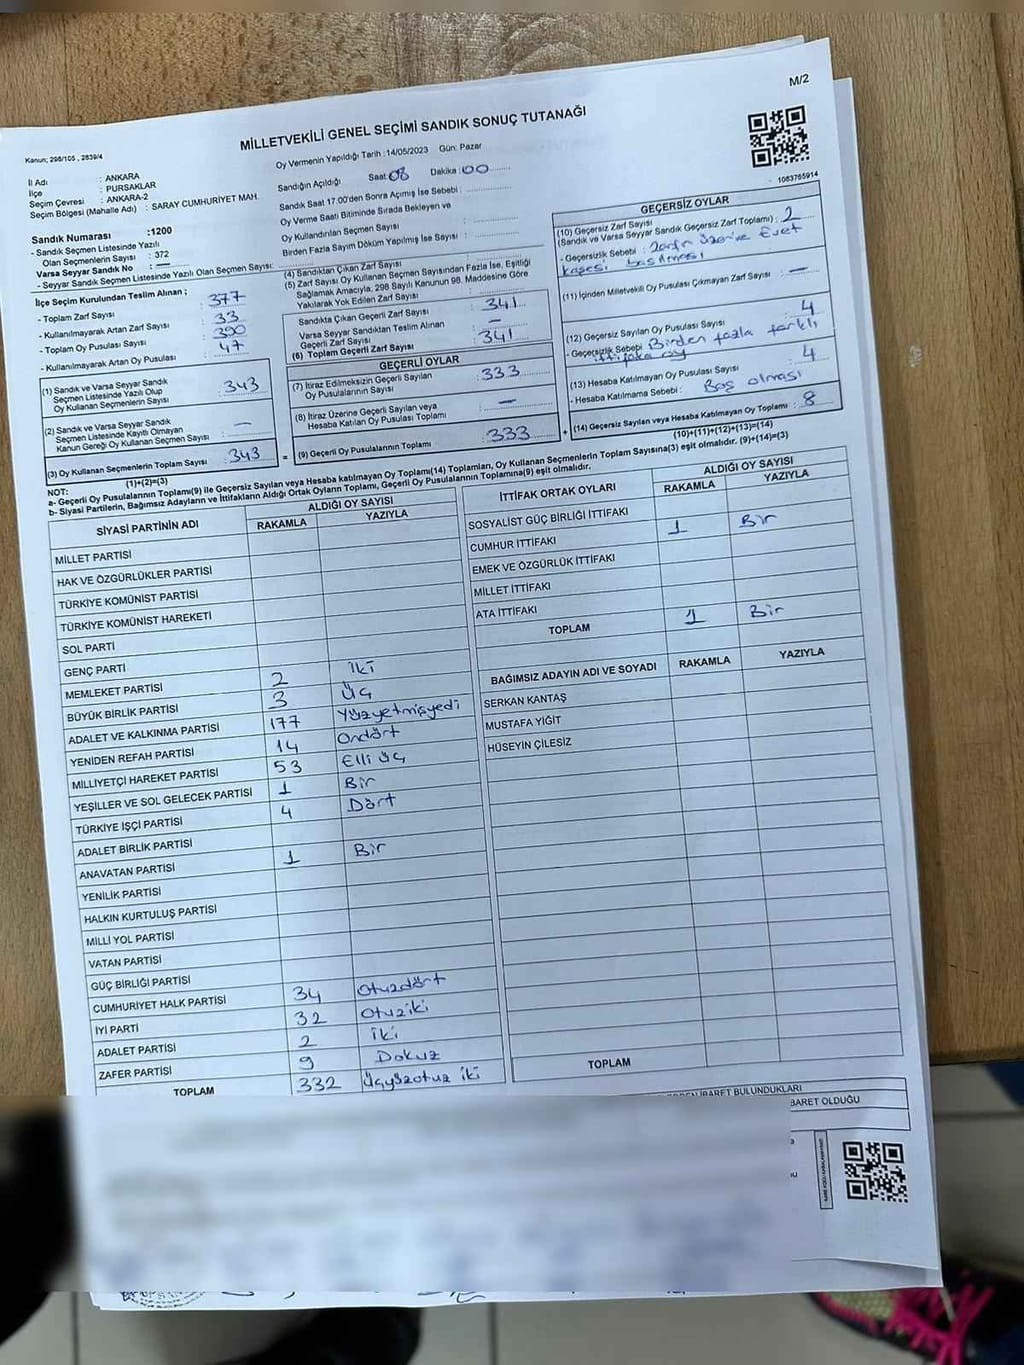 M/2
MİLLETVEKİLİ GENEL SEÇİMİ SANDIK SONUÇ TUTANAĞI
Kanun; 298/105 , 2839/4
Oy Vermenin Yapıldığı Tarih :14/05/2023 Gün: Pazar
1083765914
İl Adı : ANKARA
İlçe : PURSAKLAR
Seçim Çevresi : ANKARA-2
Seçim Bölgesi (Mahalle Adı) : SARAY CUMHURİYET MAH.
Sandık Numarası :1200
- Sandık Seçmen Listesinde Yazılı
Olan Seçmenlerin Sayısı : 372
Varsa Seyyar Sandık No : —
- Seyyar Sandık Seçmen Listesinde Yazılı Olan Seçmen Sayısı:
İlçe Seçim Kurulundan Teslim Alınan ;
- Toplam Zarf Sayısı : 377
- Kullanılmayarak Artan Zarf Sayısı : 33
- Toplam Oy Pusulası Sayısı : 390
- Kullanılmayarak Artan Oy Pusulası : 47
(1) Sandık ve Varsa Seyyar Sandık
Seçmen Listesinde Yazılı Olup
Oy Kullanan Seçmenlerin Sayısı : 343
(2) Sandık ve Varsa Seyyar Sandık
Seçmen Listesinde Kayıtlı Olmayan
Kanun Gereği Oy Kullanan Seçmen Sayısı : —
(3) Oy Kullanan Seçmenlerin Toplam Sayısı : 343
(1)+(2)=(3)
Sandığın Açıldığı Saat 08 Dakika :00
Sandık Saat 17.00'den Sonra Açımış İse Sebebi :
Oy Verme Saati Bitiminde Sırada Bekleyen ve
Oy Kullandırılan Seçmen Sayısı :
Birden Fazla Sayım Döküm Yapılmış İse Sayısı :
(4) Sandıktan Çıkan Zarf Sayısı
(5) Zarf Sayısı Oy Kullanan Seçmen Sayısından Fazla İse, Eşitliği
Sağlamak Amacıyla, 298 Sayılı Kanunun 98. Maddesine Göre
Yakılarak Yok Edilen Zarf Sayısı :
Sandıkta Çıkan Geçerli Zarf Sayısı : 341
Varsa Seyyar Sandıktan Teslim Alınan
Geçerli Zarf Sayısı : —
(6) Toplam Geçerli Zarf Sayısı : 341
GEÇERLİ OYLAR
(7) İtiraz Edilmeksizin Geçerli Sayılan
Oy Pusulalarının Sayısı : 333
(8) İtiraz Üzerine Geçerli Sayılan veya
Hesaba Katılan Oy Pusulası Toplamı : —
= (9) Geçerli Oy Pusulalarının Toplamı : 333 +
GEÇERSİZ OYLAR
(10) Geçersiz Zarf Sayısı
(Sandık ve Varsa Seyyar Sandık Geçersiz Zarf Toplamı) : 2
- Geçersizlik Sebebi : Zarfın üzerine Evet
kaşesi basılması
(11) İçinden Milletvekili Oy Pusulası Çıkmayan Zarf Sayısı : —
(12) Geçersiz Sayılan Oy Pusulası Sayısı : 4
- Geçersizlik Sebebi Birden fazla farklı
ittifaka oy
(13) Hesaba Katılmayan Oy Pusulası Sayısı : 4
- Hesaba Katılmama Sebebi : Boş olması
(14) Geçersiz Sayılan veya Hesaba Katılmayan Oy Toplamı : 8
(10)+(11)+(12)+(13)=(14)
NOT:
a- Geçerli Oy Pusulalarının Toplamı(9) ile Geçersiz Sayılan veya Hesaba katılmayan Oy Toplamı(14) Toplamları, Oy Kullanan Seçmenlerin Toplam Sayısına(3) eşit olmalıdır. (9)+(14)=(3)
b- Siyasi Partilerin, Bağımsız Adayların ve İttifakların Aldığı Ortak Oyların Toplamı, Geçerli Oy Pusulalarının Toplamına(9) eşit olmalıdır.
SİYASİ PARTİNİN ADI ALDIĞI OY SAYISI
RAKAMLA YAZIYLA
MİLLET PARTİSİ
HAK VE ÖZGÜRLÜKLER PARTİSİ
TÜRKİYE KOMÜNİST PARTİSİ
TÜRKİYE KOMÜNİST HAREKETİ
SOL PARTİ
GENÇ PARTİ
MEMLEKET PARTİSİ 2 İki
BÜYÜK BİRLİK PARTİSİ 3 Üç
ADALET VE KALKINMA PARTİSİ 177 Yüzyetmişyedi
YENİDEN REFAH PARTİSİ 14 Ondört
MİLLİYETÇİ HAREKET PARTİSİ 53 Elli üç
YEŞİLLER VE SOL GELECEK PARTİSİ 1 Bir
TÜRKİYE İŞÇİ PARTİSİ 4 Dört
ADALET BİRLİK PARTİSİ
ANAVATAN PARTİSİ 1 Bir
YENİLİK PARTİSİ
HALKIN KURTULUŞ PARTİSİ
MİLLİ YOL PARTİSİ
VATAN PARTİSİ
GÜÇ BİRLİĞİ PARTİSİ
CUMHURİYET HALK PARTİSİ 34 Otuzdört
İYİ PARTİ 32 Otuziki
ADALET PARTİSİ 2 İki
ZAFER PARTİSİ 9 Dokuz
TOPLAM 332 Üçyüzotuz iki
İTTİFAK ORTAK OYLARI ALDIĞI OY SAYISI
RAKAMLA YAZIYLA
SOSYALİST GÜÇ BİRLİĞİ İTTİFAKI
CUMHUR İTTİFAKI 1 Bir
EMEK VE ÖZGÜRLÜK İTTİFAKI
MİLLET İTTİFAKI
ATA İTTİFAKI
TOPLAM 1 Bir
BAĞIMSIZ ADAYIN ADI VE SOYADI RAKAMLA YAZIYLA
SERKAN KANTAŞ
MUSTAFA YİĞİT
HÜSEYİN ÇİLESİZ
TOPLAM
İBARET BULUNDUKLARI
BARET OLDUĞU